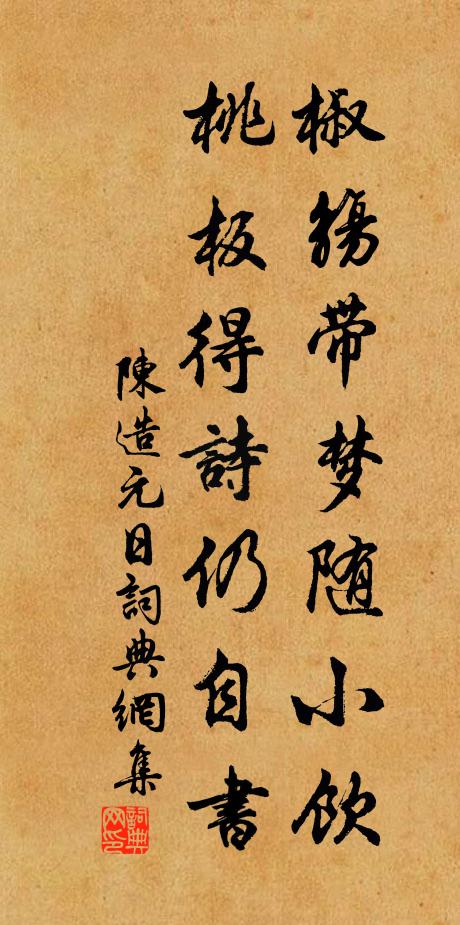 椒觞带梦随小饮
桃板得詩仍自書
陳造元日詞典網集
詞典网印